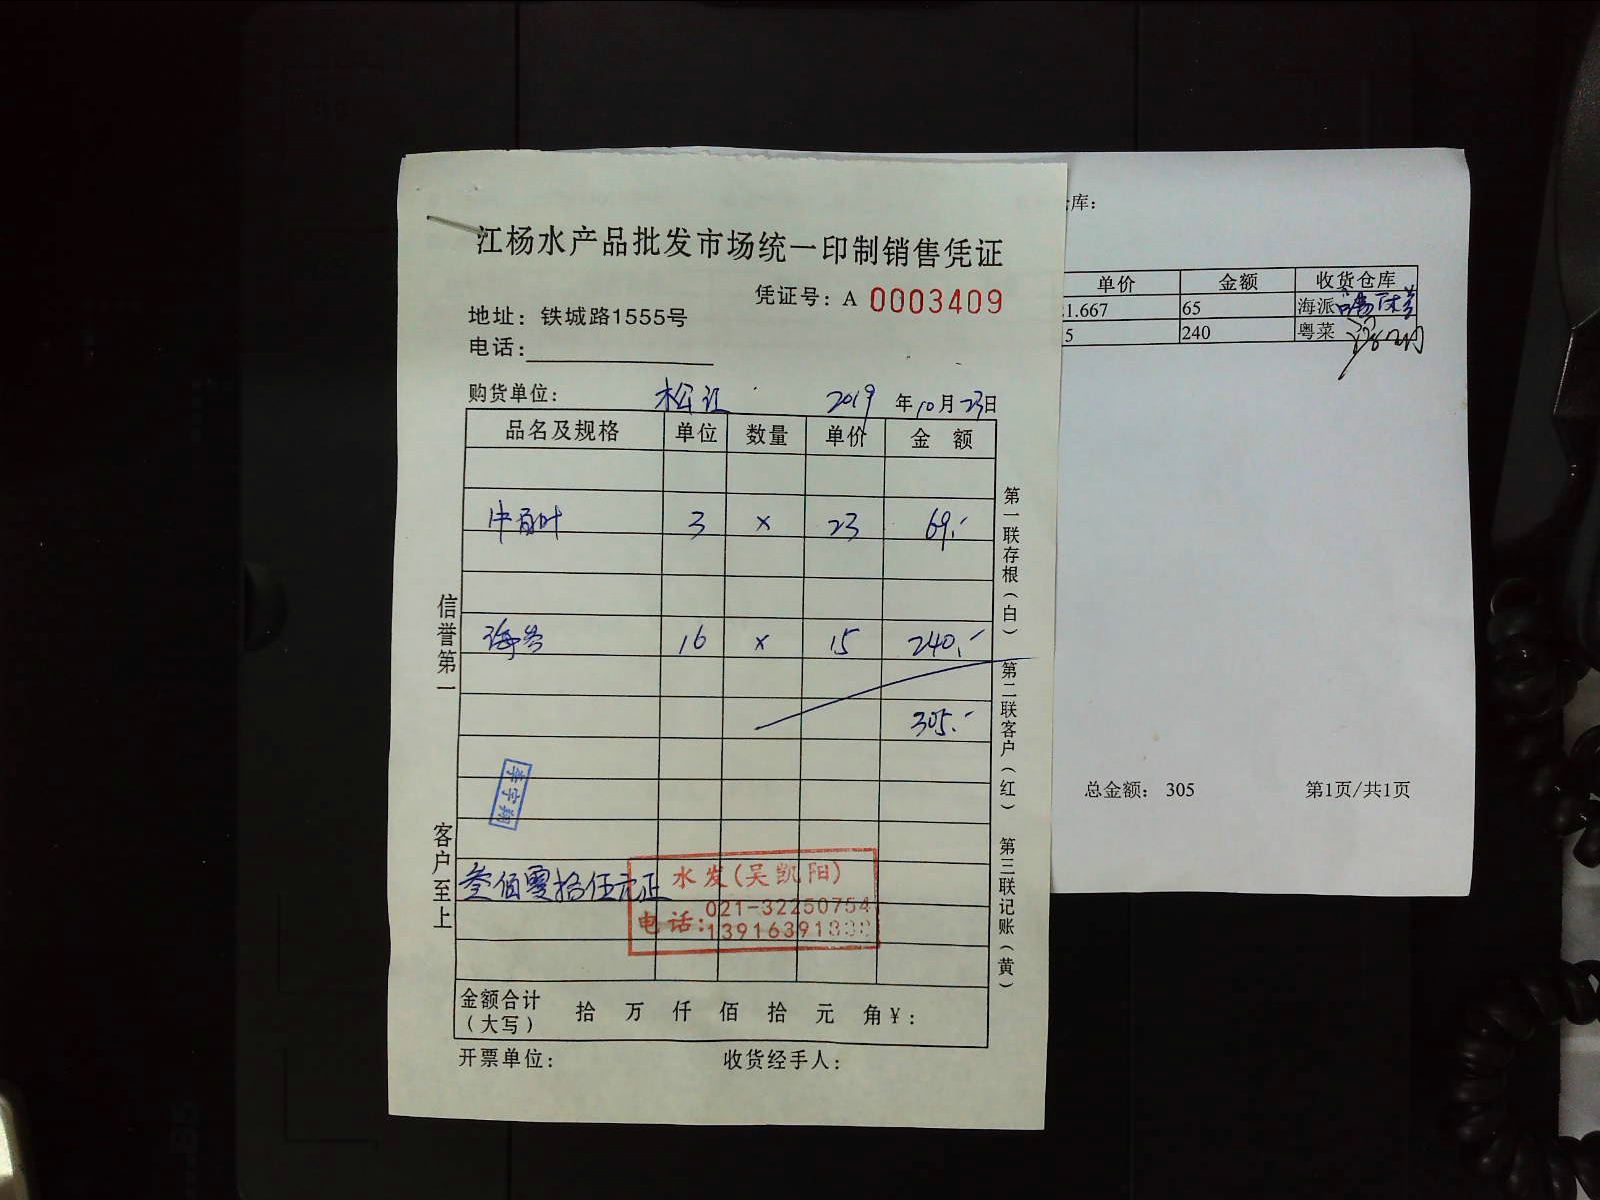 江杨水产品批发市场统一印制销售凭证
凭证号：A 0003409
地址：铁城路1555号
电话：
购货单位： 松江 2019年10月23日
品名及规格 单位 数量 单价 金 额
牛百叶 3 × 23 69.-
16 × 15 240.-
305.-
李宇翔
叁佰零拾伍元正
水发(吴凯阳)
电话:021-32250754
金额合计（大写） 拾 万 仟 佰 拾 元 角￥：
开票单位： 收货经手人：
信誉第一
客户至上
第一联存根（白） 第二联客户（红） 第三联记账（黄）
库：
单价 金额 收货仓库
1.667 65 海派
5 240 粤菜
总金额： 305 第1页/共1页